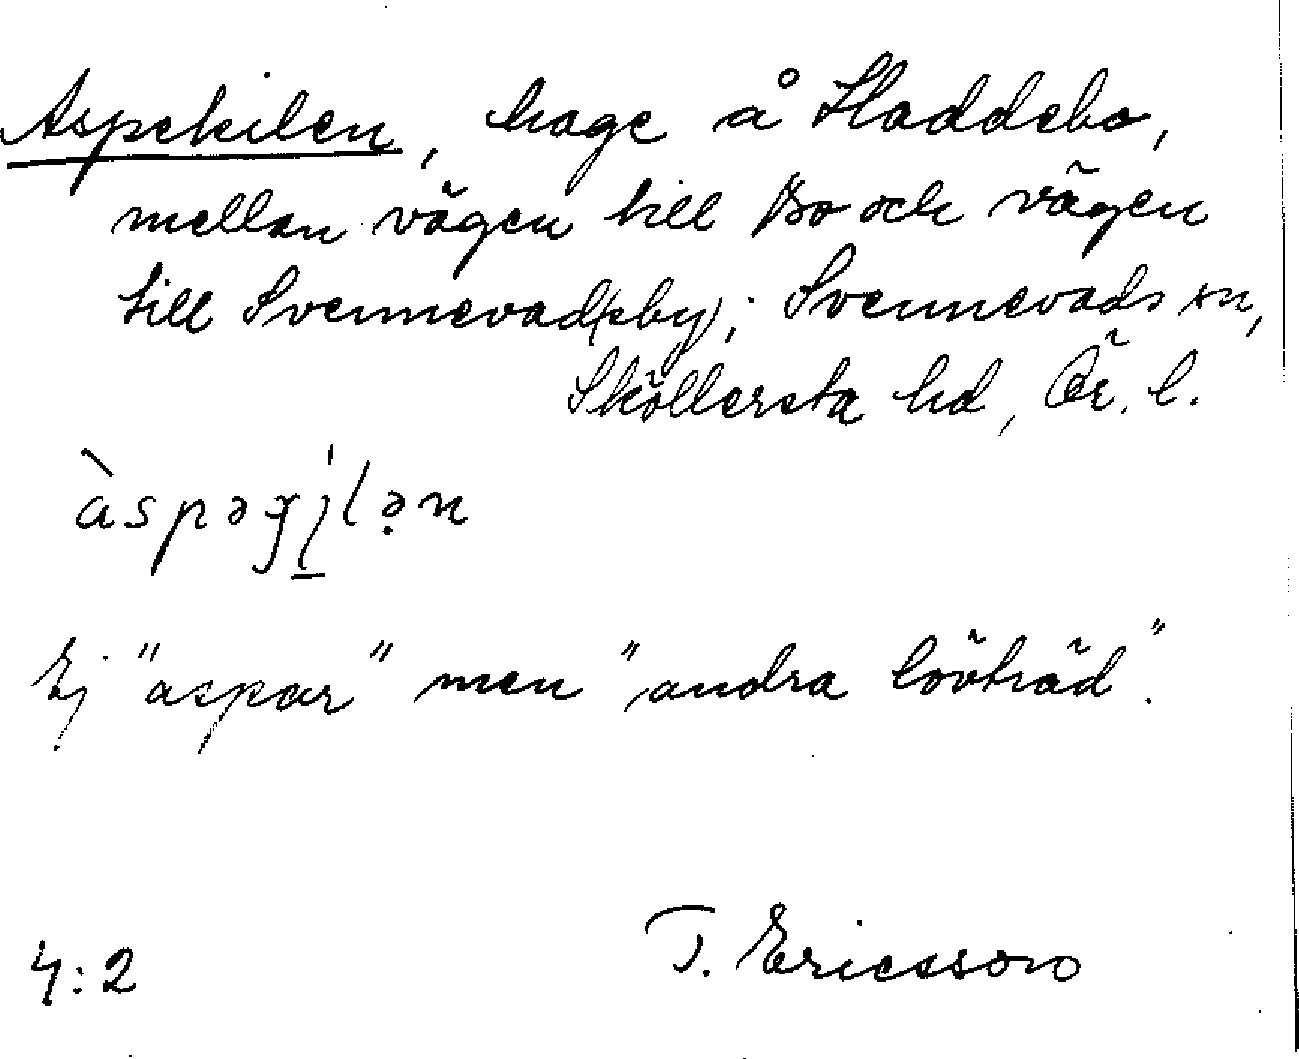 Aspekilen, hage å Sladdebo,
mellan vägen till Bo och vägen
till Svennevad(sby); Svennevads sn,
Sköllersta hd, Ör. l.
Ej "aspar" men "andra lövträd".
4:2 T. Ericsson